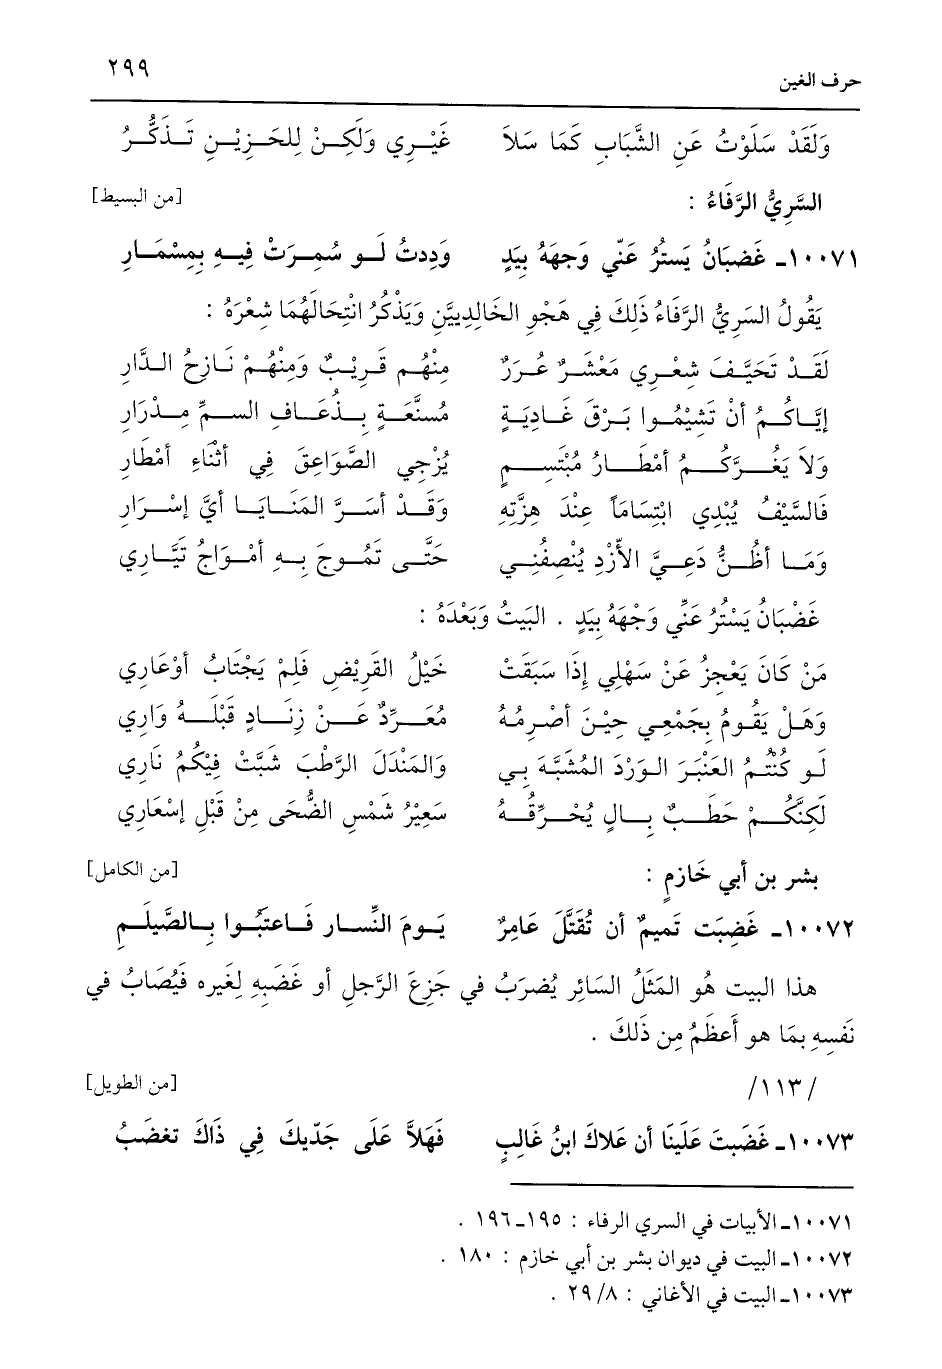 ٢٩٩
حرف الغين
وَلَقَدْ سَلَوْتُ عَنِ الشَّبَابِ كَمَا سَلاَ غَيْرِي وَلَكِنْ لِلحَزِيْنِ تَذَكُّرُ
السَّرِيُّ الرَّفَاءُ : [من البسيط]
١٠٠٧١ـ غَضبَانُ يَستُرُ عَنّي وَجهَهُ بِيَدٍ وَدِدتُ لَو سُمِرَتْ فِيهِ بِمِسْمَارِ
يَقُولُ السَرِيُّ الرَّفَاءُ ذَلِكَ فِي هَجْوِ الخَالِدِييَّنِ وَيَذْكُرُ انْتِحَالَهُمَا شِعْرَهُ :
لَقَدْ تَحَيَّفَ شِعْرِي مَعْشَرٌ عُرَرٌ مِنْهُم قَرِيْبٌ وَمِنْهُمْ نَازِحُ الدَّارِ
إيَّاكُمُ أنْ تَشِيْمُوا بَرْقَ غَادِيَةٍ مُسنَّعَةٍ بِذُعَافِ السمِّ مِدْرَارِ
وَلاَ يَغُرَّكُمُ أمْطَارُ مُبْتَسِمٍ يُزْجِي الصَّوَاعِقَ فِي أثْنَاءِ أمْطَارِ
فَالسَّيْفُ يُبْدِي ابْتِسَامَاً عِنْدَ هِزَّتِهِ وَقَدْ أسَرَّ المَنَايَا أيَّ إسْرَارِ
وَمَا أظُنُّ دَعِيَّ الأزْدِ يُنْصِفُنِي حَتَّى تَمُوجَ بِهِ أمْوَاجُ تيَّارِي
غَضْبَانُ يَسْتُرُ عَنِّي وَجْهَهُ بِيَدٍ . البَيتُ وَبَعْدَهُ :
مَنْ كَانَ يَعْجِزُ عَنْ سَهْلِي إذَا سَبَقَتْ خَيْلُ القَرِيْضِ فَلِمْ يَجْتَابُ أوْعَارِي
وَهَلْ يَقُومُ بِجَمْعِي حِيْنَ أضْرِمُهُ مُعَرِّدٌ عَنْ زِنَادٍ قَبْلَهُ وَارِي
لَو كُنْتُمُ العَنْبَرَ الوَرْدَ المُشَبَّهَ بِي وَالمَنْدَلَ الرَّطْبَ شَبَّتْ فِيْكُمُ نَارِي
لَكِنَّكُمْ حَطَبٌ بِالٍ يُحْرِّقُهُ سَعِيْرُ شَمْسِ الضُّحَى مِنْ قَبْلِ إسْعَارِي
بشر بن أبي خَازمٍ : [من الكامل]
١٠٠٧٢ـ غَضِبَت تَميمٌ أن تُقَتَّلَ عَامِرٌ يَومَ النِّسارِ فَاعتَبُوا بِالصَّيلَمِ
هذا البيت هُو المَثَلُ السَائِر يُضرَبُ في جَزعَ الرَّجلِ أو غَضَبِهِ لِغَيره فَيُصَابُ في
نَفسِهِ بِمَا هو أَعظَمُ مِن ذَلكَ .
/١١٣/ [من الطويل]
١٠٠٧٣ـ غَضَبتَ عَلَينَا أن عَلاكَ ابنُ غَالِبٍ فَهَلاَّ عَلَى جَدّيكَ فِي ذَاكَ تغضَبُ
١٠٠٧١ـ الأبيات في السري الرفاء : ١٩٥ـ١٩٦ .
١٠٠٧٢ـ البيت في ديوان بشر بن أبي خازم : ١٨٠ .
١٠٠٧٣ـ البيت في الأغاني : ٨/ ٢٩ .